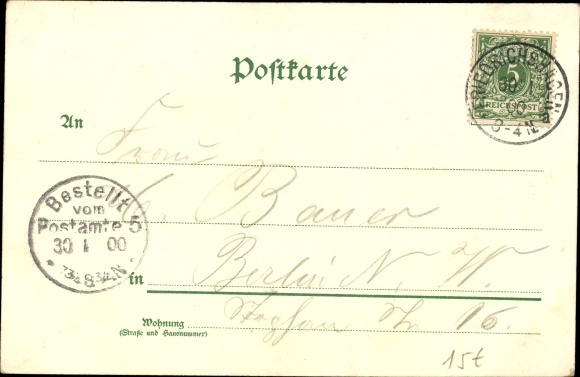 Postkarte
5
REICHSPOST
FRIEDRICHSHAGEN
30
3-4N.
An
Frau
Bauer
Bestellt
vom
Postamte 5
30 1 00
in Berlin N. W.
Stephan Str. 16.
Wohnung
(Straße und Hausnummer)
15t